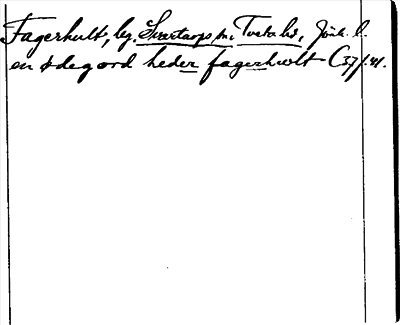 Fagerhult, by. Svartarps sn. Tveta hd, Jönk. l.
en ödegord heder fagerhwlt (57/: 41.